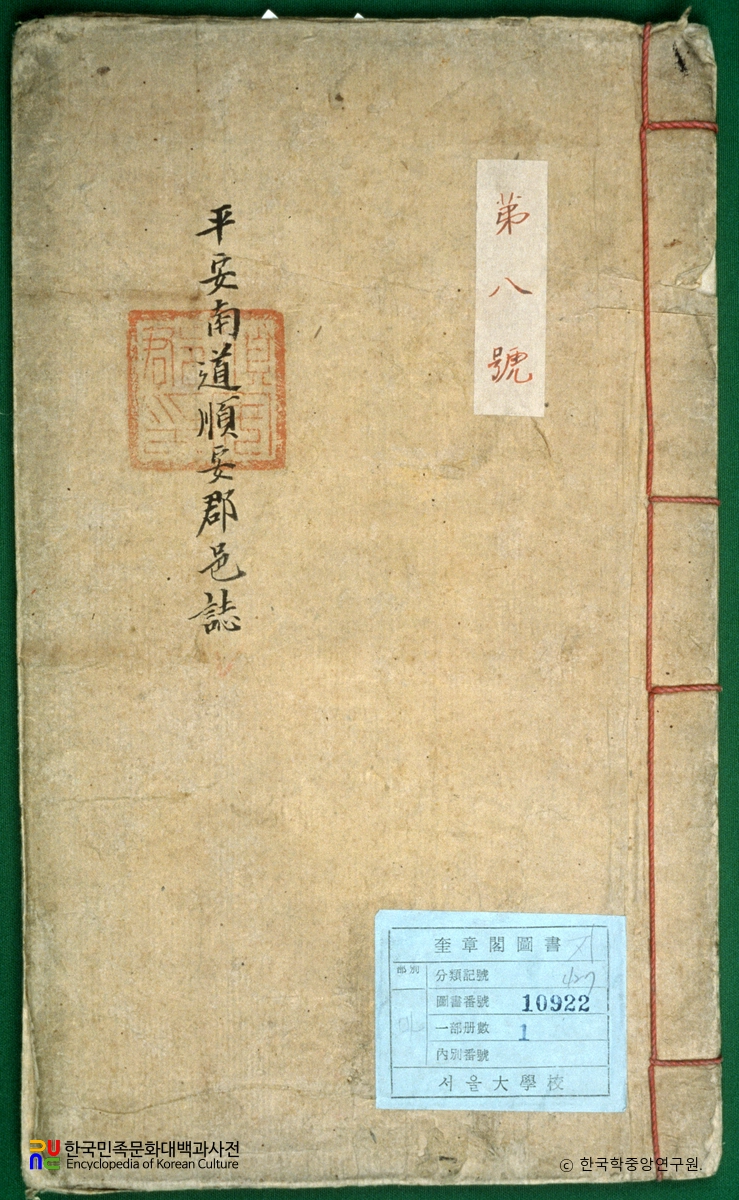 第八號
平安南道順安郡邑誌
奎章閣圖書
部別
分類記號
圖書番號 10922
一部册數 1
內別番號
서울大學校
한국민족문화대백과사전
Encyclopedia of Korean Culture
© 한국학중앙연구원.